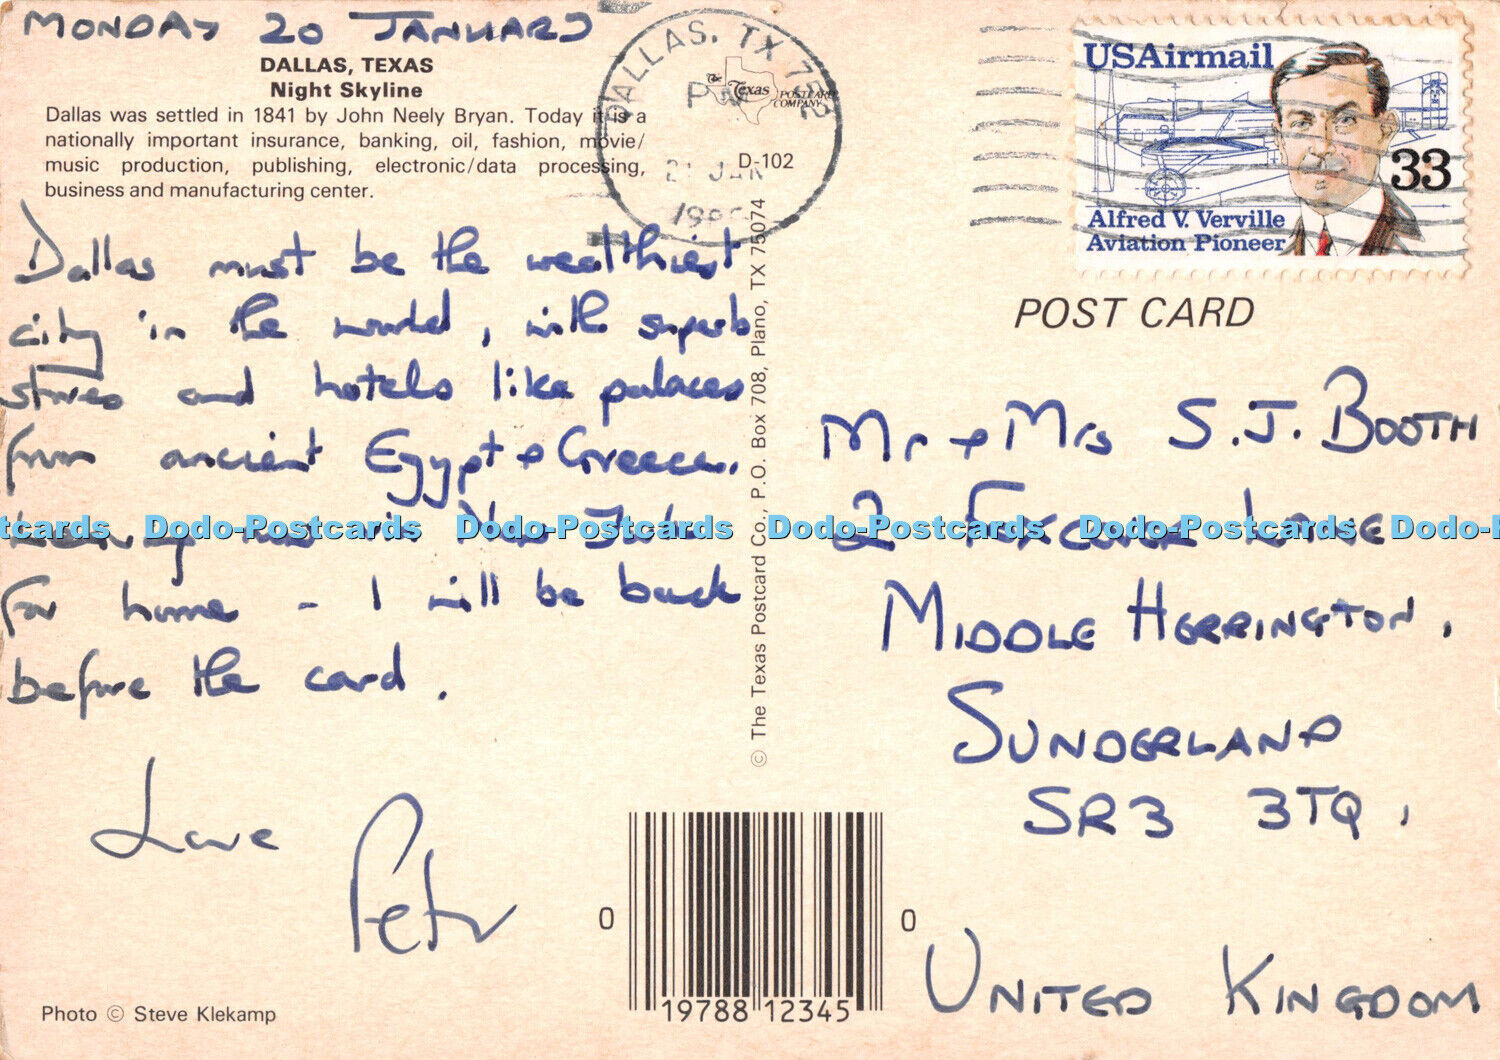 MONDAY 20 JANUARY
DALLAS, TEXAS
Night Skyline
Dallas was settled in 1841 by John Neely Bryan. Today it is a
nationally important insurance, banking, oil, fashion, movie/
music production, publishing, electronic/data processing,
business and manufacturing center.
Dallas must be the wealthiest
city in the world, with superb
stores and hotels like palaces
from ancient Egypt + Greece.
for home - I will be back
before the card.
Love
Peter
Photo © Steve Klekamp
DALLAS, TX 752
PM
21 JAN
The Texas POSTCARD COMPANY
D-102
© The Texas Postcard Co., P.O. Box 708, Plano, TX 75074
USAirmail
33
Alfred V. Verville
Aviation Pioneer
POST CARD
Mr + Mrs S.J. BOOTH
2 LANE
MIDDLE HERRINGTON,
SUNDERLAND
SR3 3TQ,
UNITED KINGDOM
0 19788 12345 0
Dodo-Postcards Dodo-Postcards Dodo-Postcards Dodo-Postcards